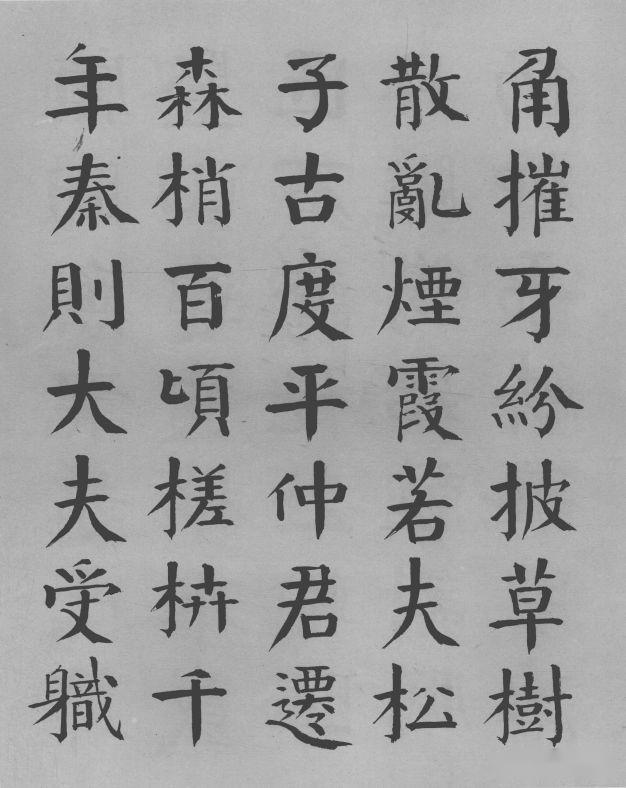 角摧牙紛披草樹
散亂煙霞若夫松
子古度平仲君遷
森梢百頃槎枿千
年秦則大夫受職